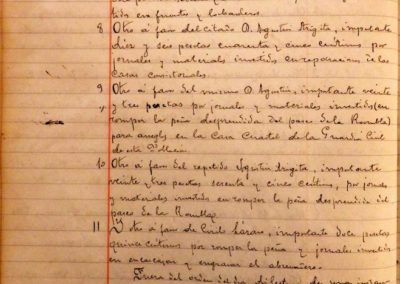 tido en fuentes y lavaderos.
8 Otro á favor del citado D. Agustin Argita, importante
diez y seis pesetas cuarenta y cinco céntimos, por
jornales y materiales invertidos en reparaciones de las
Casas Consistoriales.
9 Otro á favor del mismo D. Agustin, importante veinte
y tres pesetas por jornales y materiales invertidos (en
romper la peña desprendida del paseo de la Rambla)
para arreglo en la Casa Cuartel de la Guardia Civil
de esta Poblacion
10 Otro á favor del repetido Agustin Argita, importante
veinte y tres pesetas setenta y cinco céntimos, por jornales
y materiales invertidos en romper la peña desprendida del
paseo de la Rambla.
11 Y otro á favor de Emilio importante doce pesetas
quince céntimos por romper la peña y jornales invertidos
en encascajar y engravar el
Fuera del orden del dia